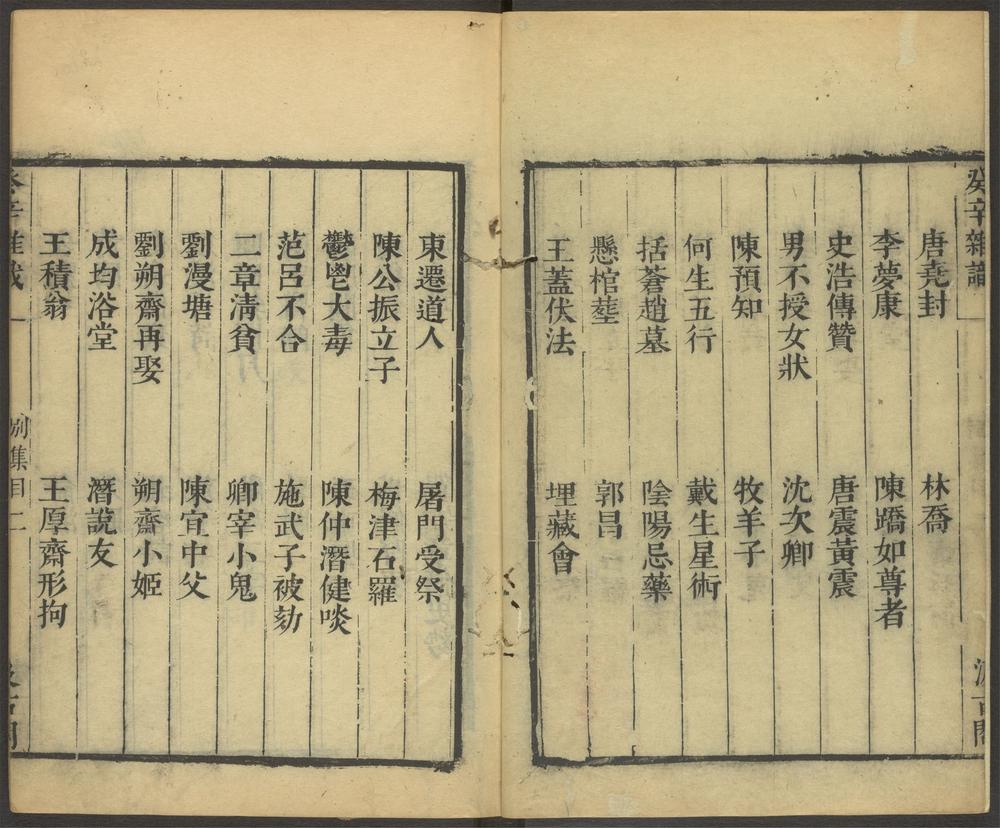 癸辛雜識
汲古閣
唐堯封 林喬
李夢庚 陳蹻如尊者
史浩傳贊 唐震黃震
男不授女狀 沈次卿
陳預知 牧羊子
何生五行 戴生星術
括蒼趙墓 陰陽忌藥
懸棺葬 郭昌
王蓋伏法 埋藏會
東遷道人 屠門受祭
陳公振立子 梅津石羅
鬱鬯大毒 陳仲潛健啖
范呂不合 施武子被劾
二章清貧 卿宰小鬼
劉漫塘 陳宜中父
劉朔齋再娶 朔齋小姬
成均浴堂 潛說友
王積翁 王厚齋形拘
別集目二